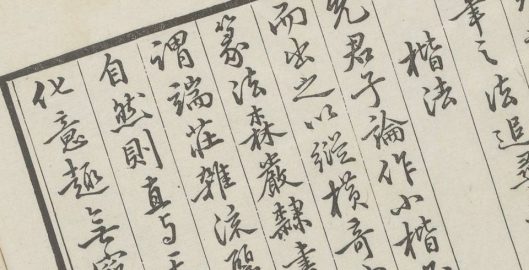 之法追
楷法
先君子論作小楷
而出之以縱橫奇
篆法森嚴隸書
謂端莊雜流麗
自然則直与
化意趣無窮